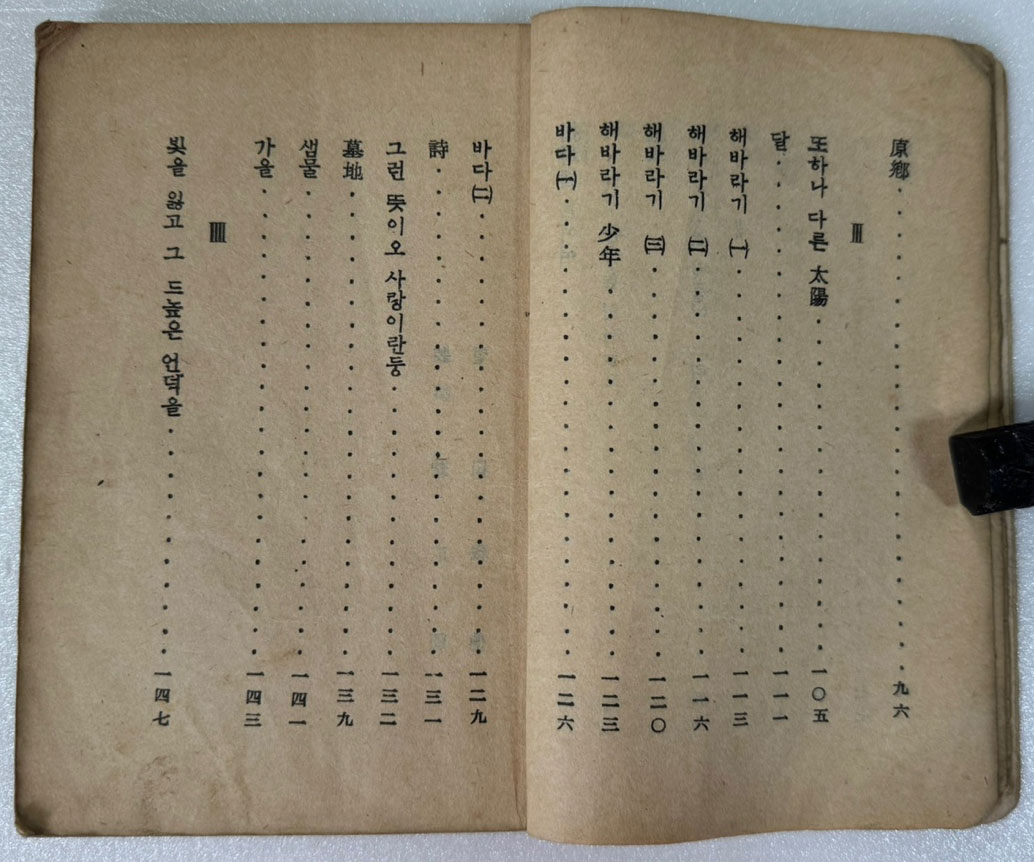 原鄕 · · · · · · · · · · · · · · · · · 九六
Ⅲ
또하나 다른 太陽 · · · · · · · · · · · · 一〇五
달 · · · · · · · · · · · · · · · · · · 一一一
해바라기 ㈠ · · · · · · · · · · · · · · 一一三
해바라기 ㈡ · · · · · · · · · · · · · · 一一六
해바라기 ㈢ · · · · · · · · · · · · · · 一二〇
해바라기 少年 · · · · · · · · · · · · · 一二三
바다㈠ · · · · · · · · · · · · · · · · 一二六
바다㈡ · · · · · · · · · · · · · · · · 一二九
詩 · · · · · · · · · · · · · · · · · · 一三一
그런 뜻이오 사랑이란둥 · · · · · · · · · 一三二
墓地 · · · · · · · · · · · · · · · · · 一三九
샘물 · · · · · · · · · · · · · · · · · 一四一
가을 · · · · · · · · · · · · · · · · · 一四三
ⅡⅡ
빛을 잃고 그 드높은 언덕을 · · · · · · · · 一四七